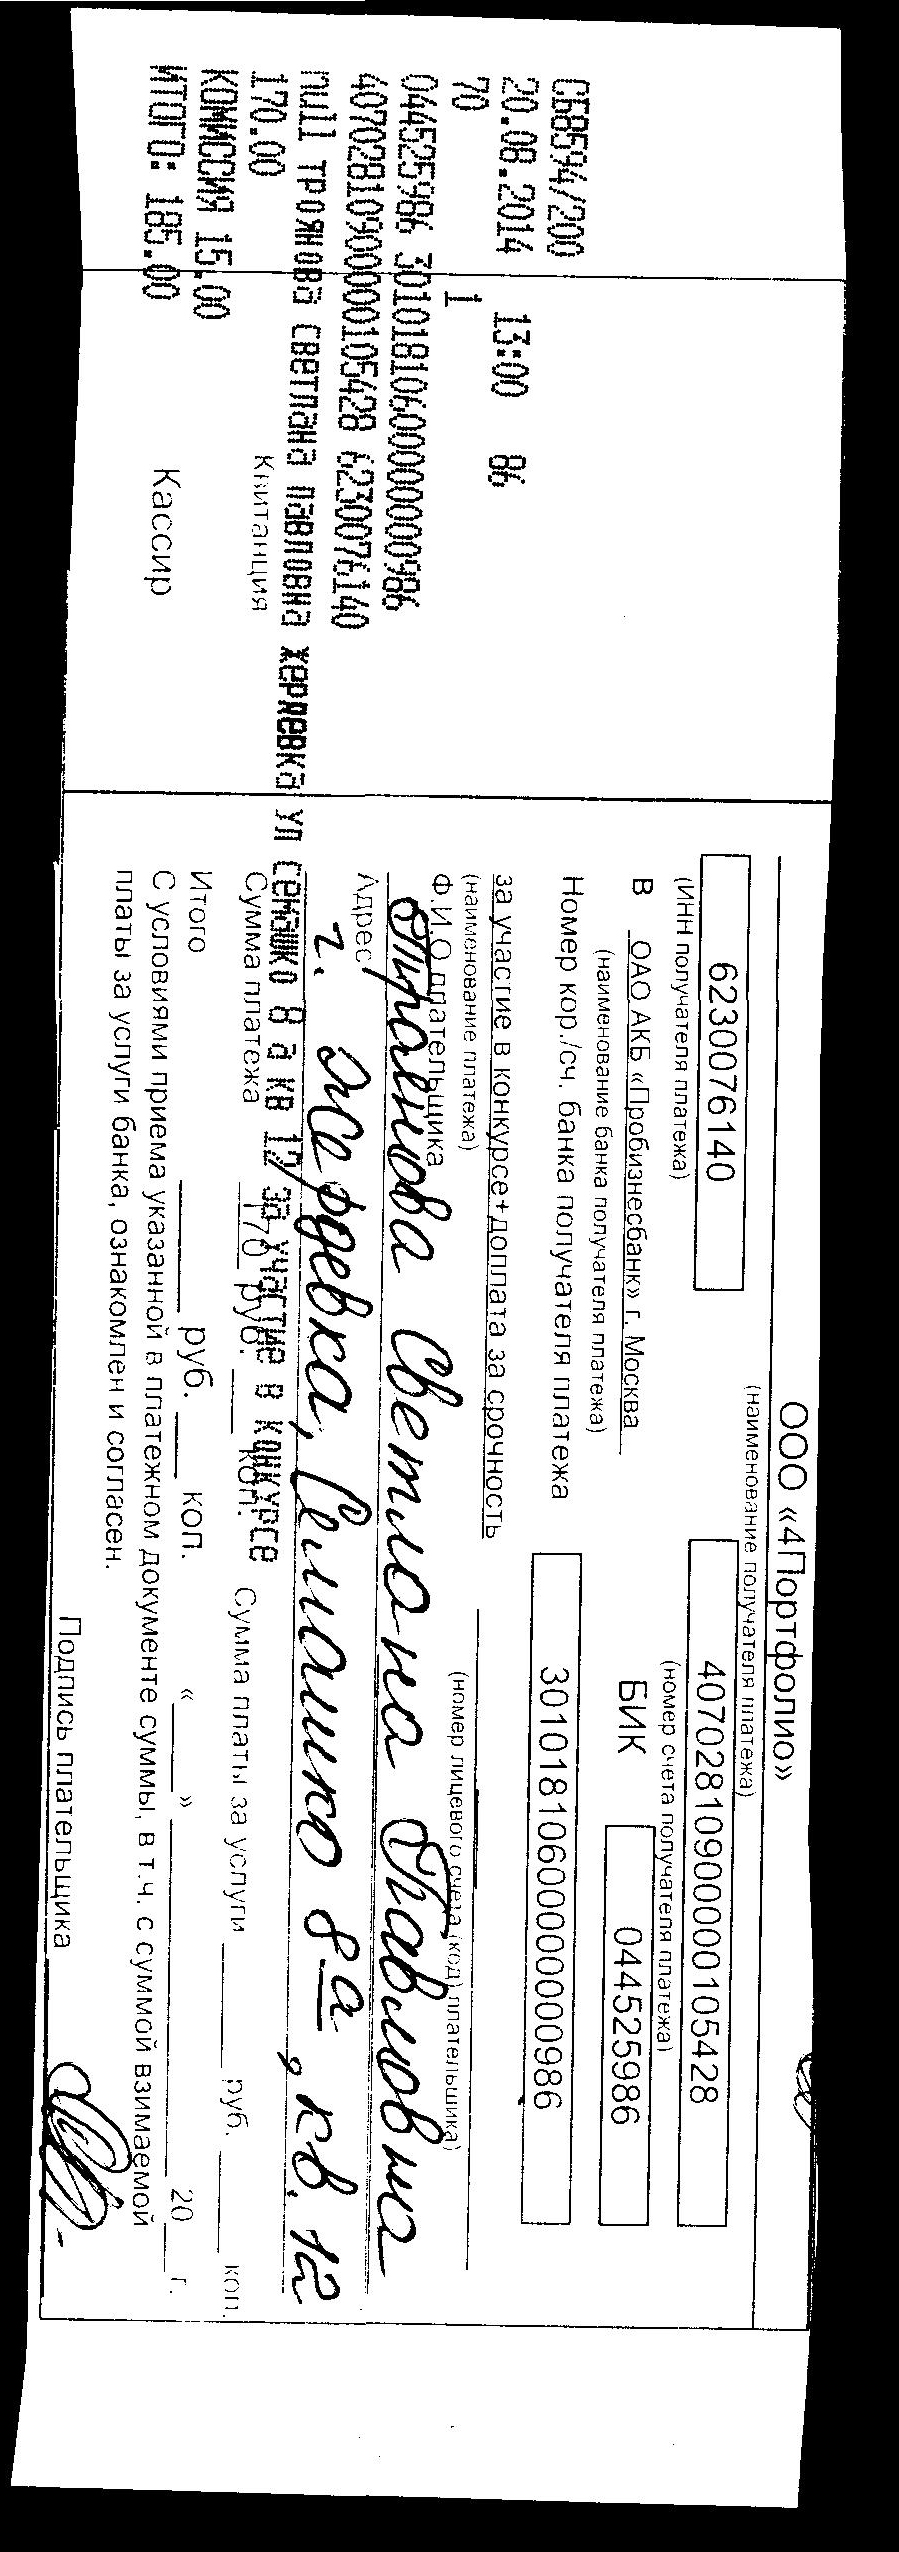 СБ8594/200
20.08.2014 13:00 86
70 1
044525986 30101810600000000986
40702810900000105428 6230076140
null троянова светлана павловна жердевка ул семашко 8 а кв 12 за участие в конкурсе
170.00
КОМИССИЯ 15.00
ИТОГО: 185.00
Квитанция
Кассир
ООО «4Портфолио»
(наименование получателя платежа)
6230076140 40702810900000105428
(ИНН получателя платежа) (номер счета получателя платежа)
В ОАО АКБ «Пробизнесбанк» г. Москва БИК 044525986
(наименование банка получателя платежа)
Номер кор./сч. банка получателя платежа 30101810600000000986
за участие в конкурсе+доплата за срочность
(наименование платежа) (номер лицевого счета (код) плательщика)
Ф.И.О плательщика Троянова Светлана Павловна
Адрес г. Жердевка, Семашко 8а, кв. 12
Сумма платежа 170 руб. коп. Сумма платы за услуги руб. коп.
Итого руб. коп. « » 20 г.
С условиями приема указанной в платежном документе суммы, в т.ч. с суммой взимаемой
платы за услуги банка, ознакомлен и согласен.
Подпись плательщика